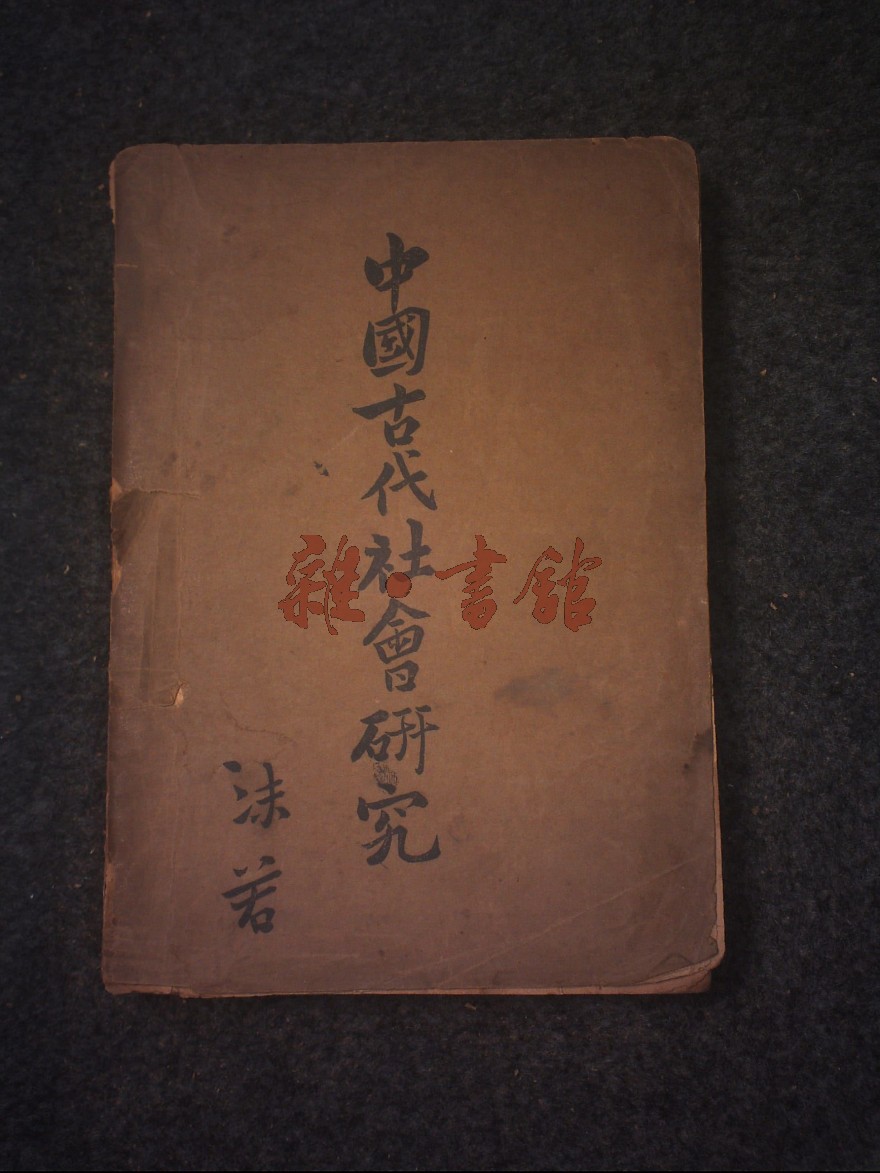 中國古代社會研究
沫若
雜·書館